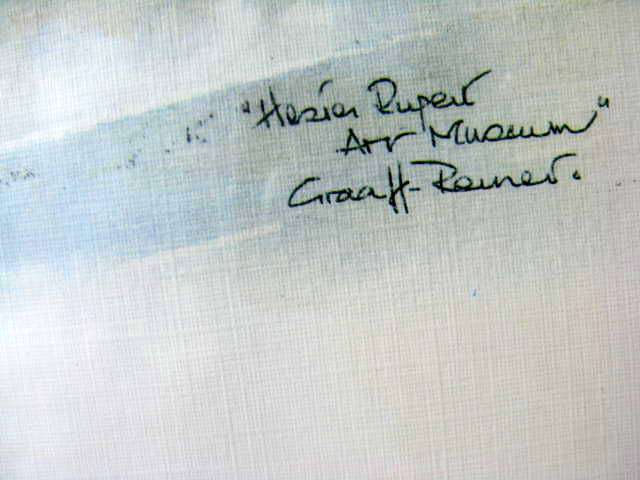 "Hester Rupert
Art Museum"
Graaff-Reinet.